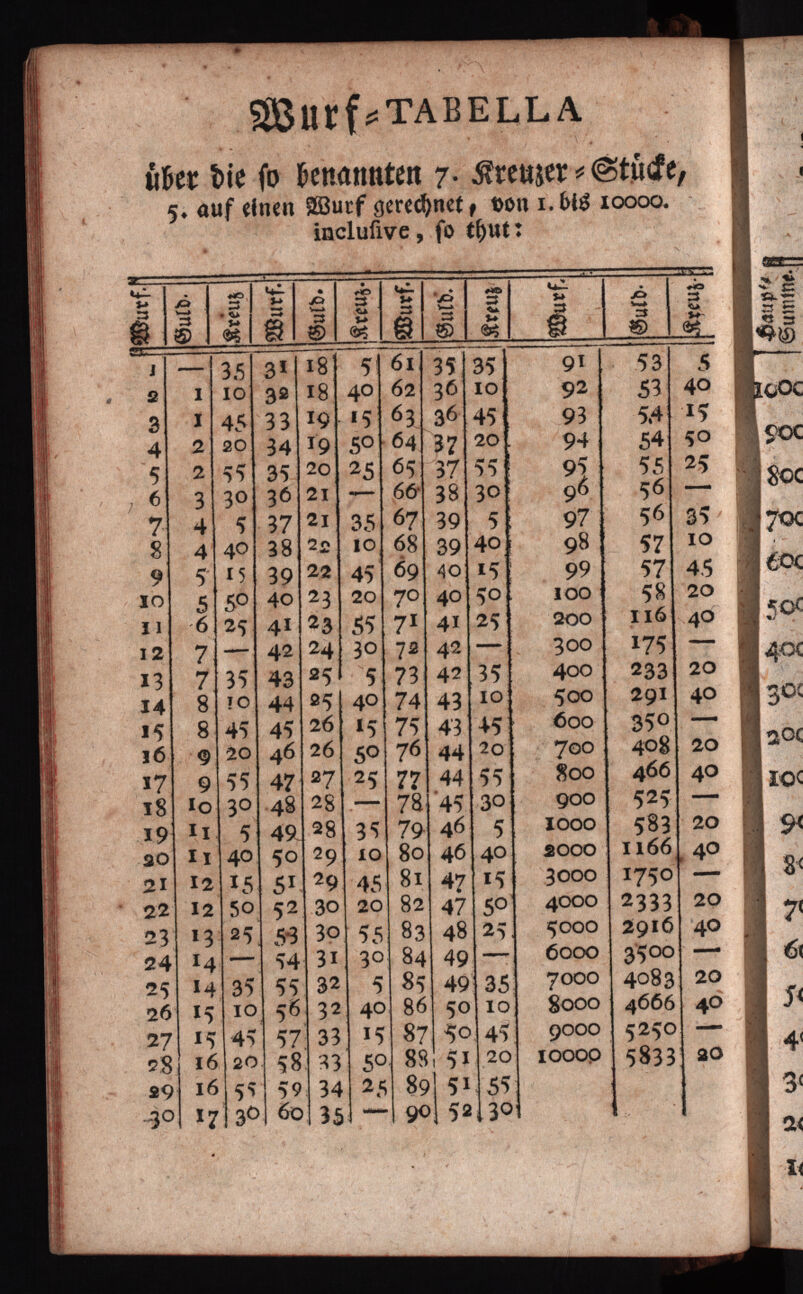 Wurf⸗TABELLA
über die so benannten 7. Kreuzer⸗Stücke,
5. auf einen Wurf gerechnet, von 1. bis 10000.
inclusive, so thut:
Wurf. Guld. Kreuz Wurf. Guld. Kreuz. Wurf. Guld. Kreuz Wurf. Guld. Kreuz.
1 — 35 31 18 5 61 35 35 91 53 5
2 1 10 32 18 40 62 36 10 92 53 40
3 1 45 33 19 15 63 36 45 93 54 15
4 2 20 34 19 50 64 37 20 94 54 50
5 2 55 35 20 25 65 37 55 95 55 25
6 3 30 36 21 — 66 38 30 96 56 —
7 4 5 37 21 35 67 39 5 97 56 35
8 4 40 38 22 10 68 39 40 98 57 10
9 5 15 39 22 45 69 40 15 99 57 45
10 5 50 40 23 20 70 40 50 100 58 20
11 6 25 41 23 55 71 41 25 200 116 40
12 7 — 42 24 30 72 42 — 300 175 —
13 7 35 43 25 5 73 42 35 400 233 20
14 8 10 44 25 40 74 43 10 500 291 40
15 8 45 45 26 15 75 43 45 600 350 —
16 9 20 46 26 50 76 44 20 700 408 20
17 9 55 47 27 25 77 44 55 800 466 40
18 10 30 48 28 — 78 45 30 900 525 —
19 11 5 49 28 35 79 46 5 1000 583 20
20 11 40 50 29 10 80 46 40 2000 1166 40
21 12 15 51 29 45 81 47 15 3000 1750 —
22 12 50 52 30 20 82 47 50 4000 2333 20
23 13 25 53 30 55 83 48 25 5000 2916 40
24 14 — 54 31 30 84 49 — 6000 3500 —
25 14 35 55 32 5 85 49 35 7000 4083 20
26 15 10 56 32 40 86 50 10 8000 4666 40
27 15 45 57 33 15 87 50 45 9000 5250 —
28 16 20 58 33 50 88 51 20 10000 5833 20
29 16 55 59 34 25 89 51 55
30 17 30 60 35 — 90 52 30
Haupt⸗
Summe.